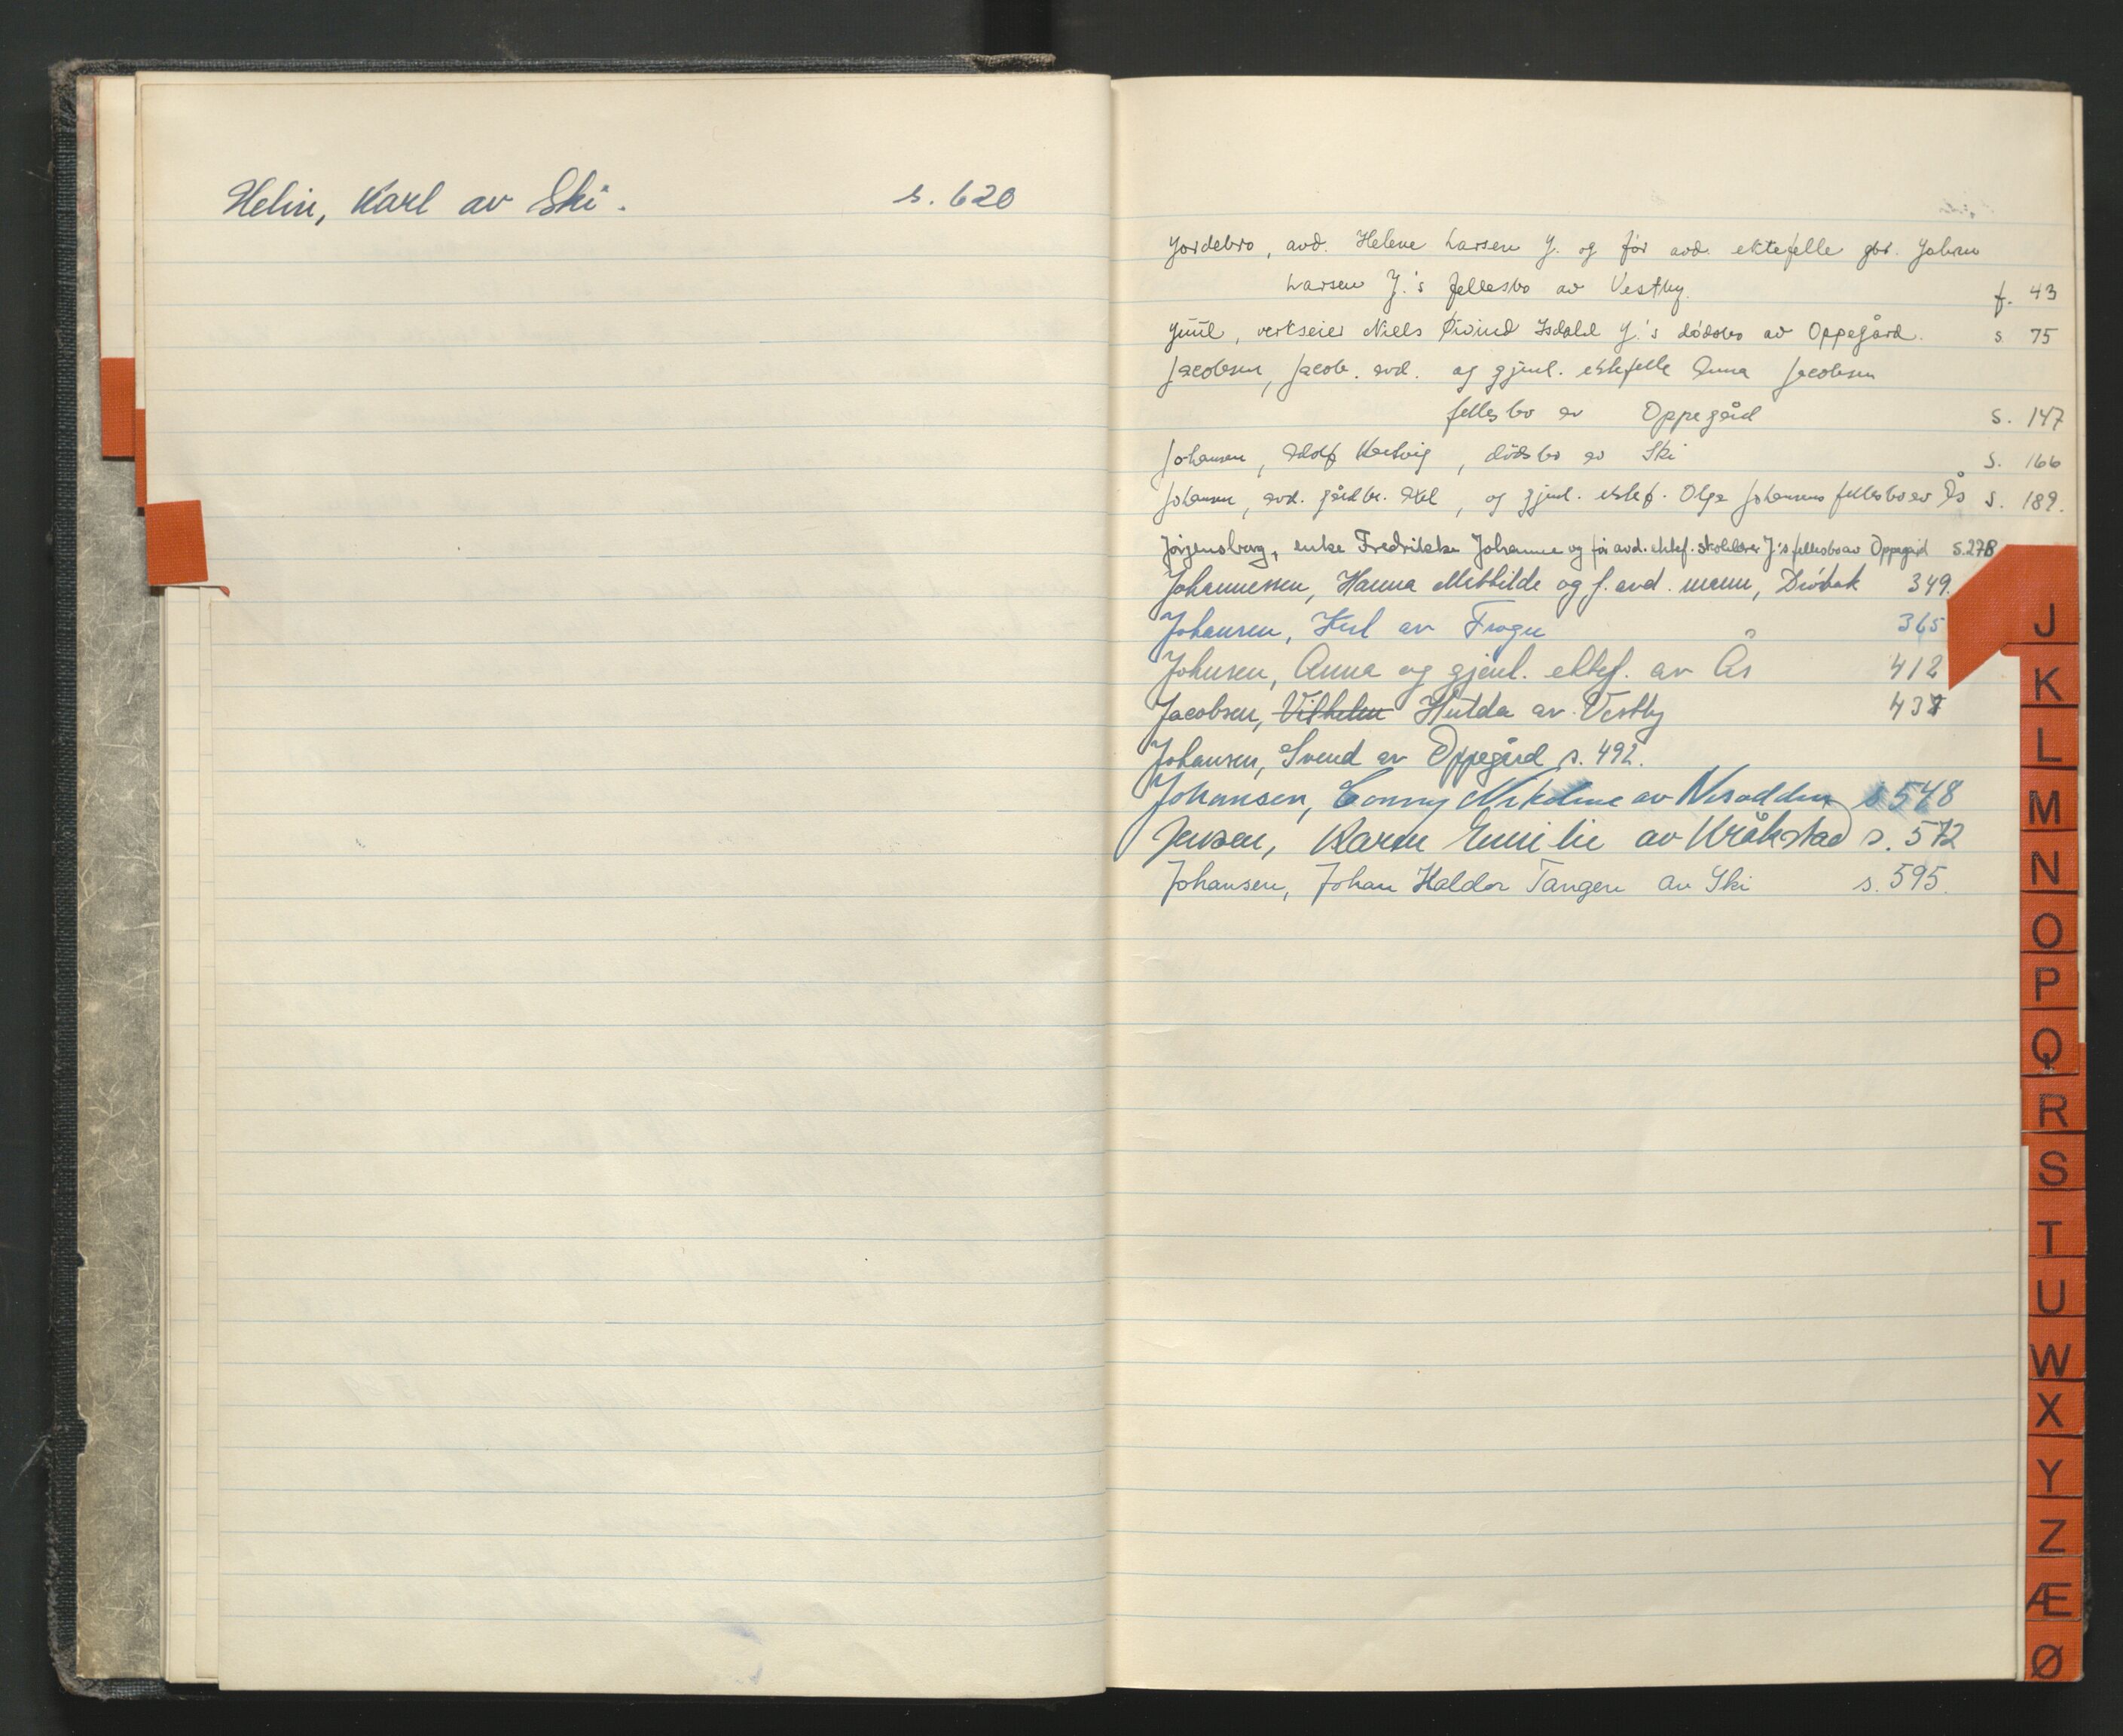 Helin, Karl av Ski. s. 620
Jordebro, avd. Helene Larsen J. og før avd. ektefelle gbr. Johan
Larsen J.'s fellesbo av Vestby. f. 43
Juul, verkseier Niels Øivind Isdahl J.'s dødsbo av Oppegård. s. 75
Jacobsen, Jacob. avd. og gjenl. ektefelle Anna Jacobsen
fellesbo av Oppegård s. 147
Johansen, Adolf Hartvig, dødsbo av Ski s. 166
Johansen, avd. gårdbr. Axel, og gjenl. ektef. Olga Johansens fellesbo av Ås s. 189.
Jørgensborg, enke Fredrikke Johanne og før avd. ektef. skolelærer J.'s fellesbo av Oppegård s. 278
Johannessen, Hanna Methilde og f. avd. mann, Drøbak 349.
Johansen, Karl av Frogn 365
Johnsen, Anna og gjenl. ektef. av Ås 412
Jacobsen, Vilhelm Hulda av Vestby
Johansen, Svend av Oppegård s. 492.
Johansen, Conny Nikoline av Nesodden s 548
Jensen, Karen Emilie av Kråkstad s. 572
Johansen, Johan Haldor Tangen av Ski s. 595.
J
K
L
M
N
O
P
Q
R
S
T
U
W
X
Y
Z
Æ
Ø